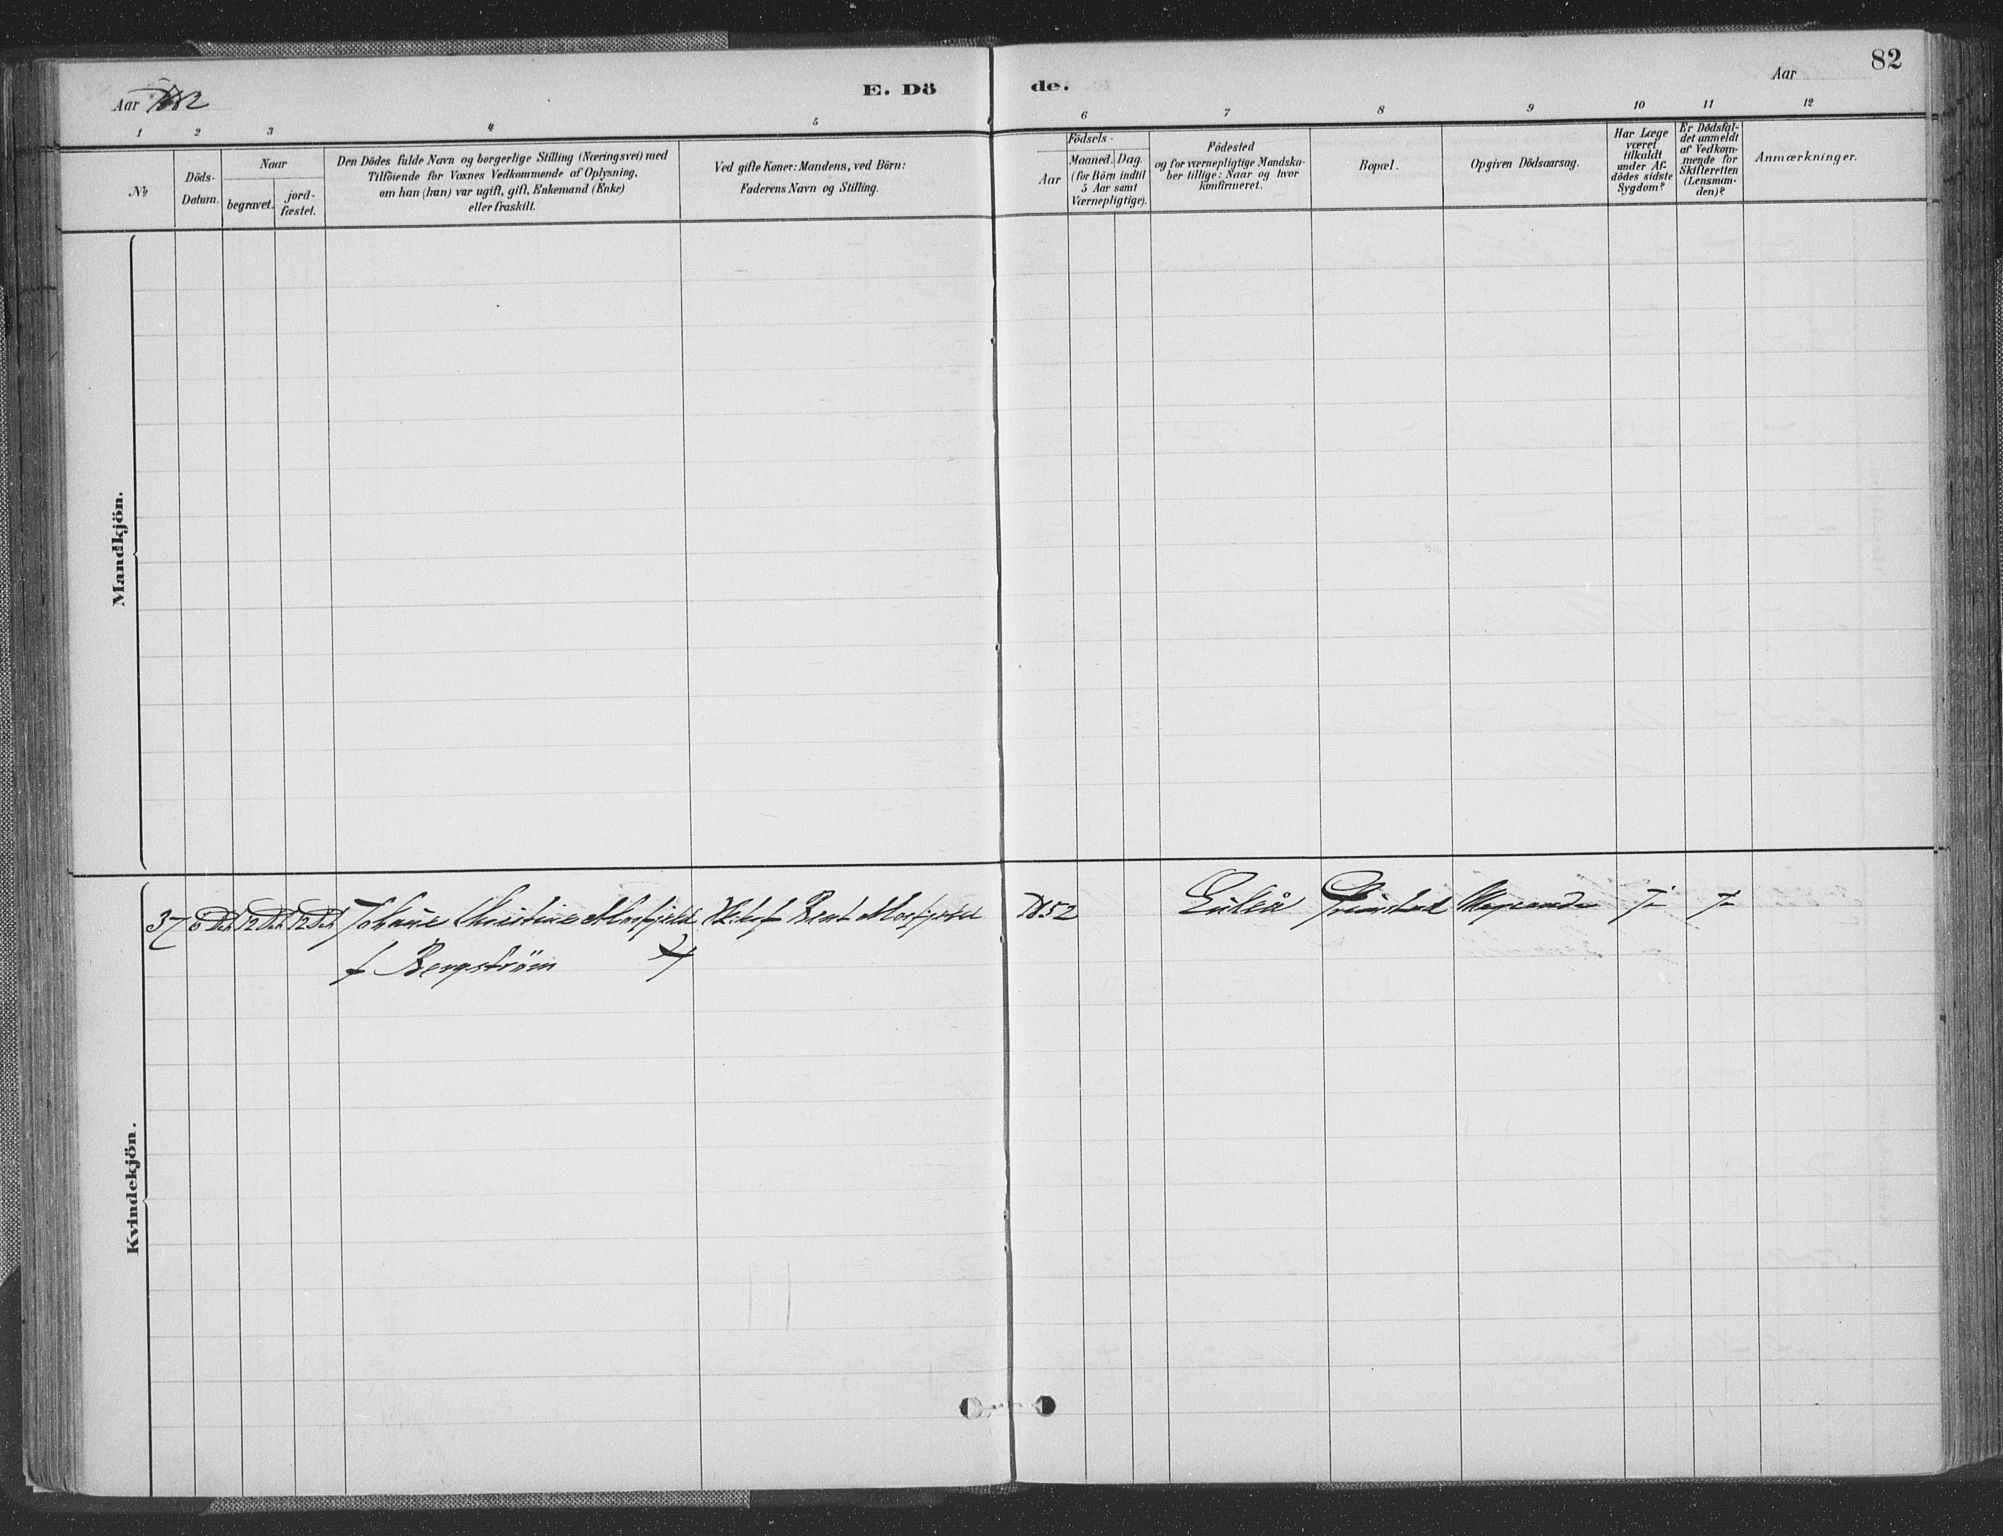 82
Aar 1882
E. Dö de.
Aar
1 2 3 4 5 6 7 8 9 10 11 12
No
Döds-
Datum.
Naar
begravet.
jord-
fæstet.
Den Dödes fulde Navn og borgerlige Stilling (Næringsvei) med
Tilföiende for Voxnes Vedkommende af Oplysning,
om han (hun) var ugift, gift, Enkemand (Enke)
eller fraskilt.
Ved gifte Koner: Mandens, ved Börn:
Faderens Navn og Stilling.
Födsels-
Aar
Maaned. Dag.
(for Börn indtil
5 Aar samt
Værnepligtige).
Födested
og for værnepligtige Mandska-
ber tillige: Naar og hvor
konfirmeret.
Bopæl.
Opgiven Dödsaarsag.
Har Læge
været
tilkaldt
under Af-
dödes sidste
Sygdom?
Er Dödsfal-
det anmeldt
af Vedkom-
mende for
Skifteretten
(Lensman-
den)?
Anmærkninger.
Mandkjön.
Kvindekjön.
37 6 Dec 12 Dec 12 Dec Johanne Christine Morfjeld Bent Morfjeld 1852 Luleå Grimstad Ja Ja
f Bergström